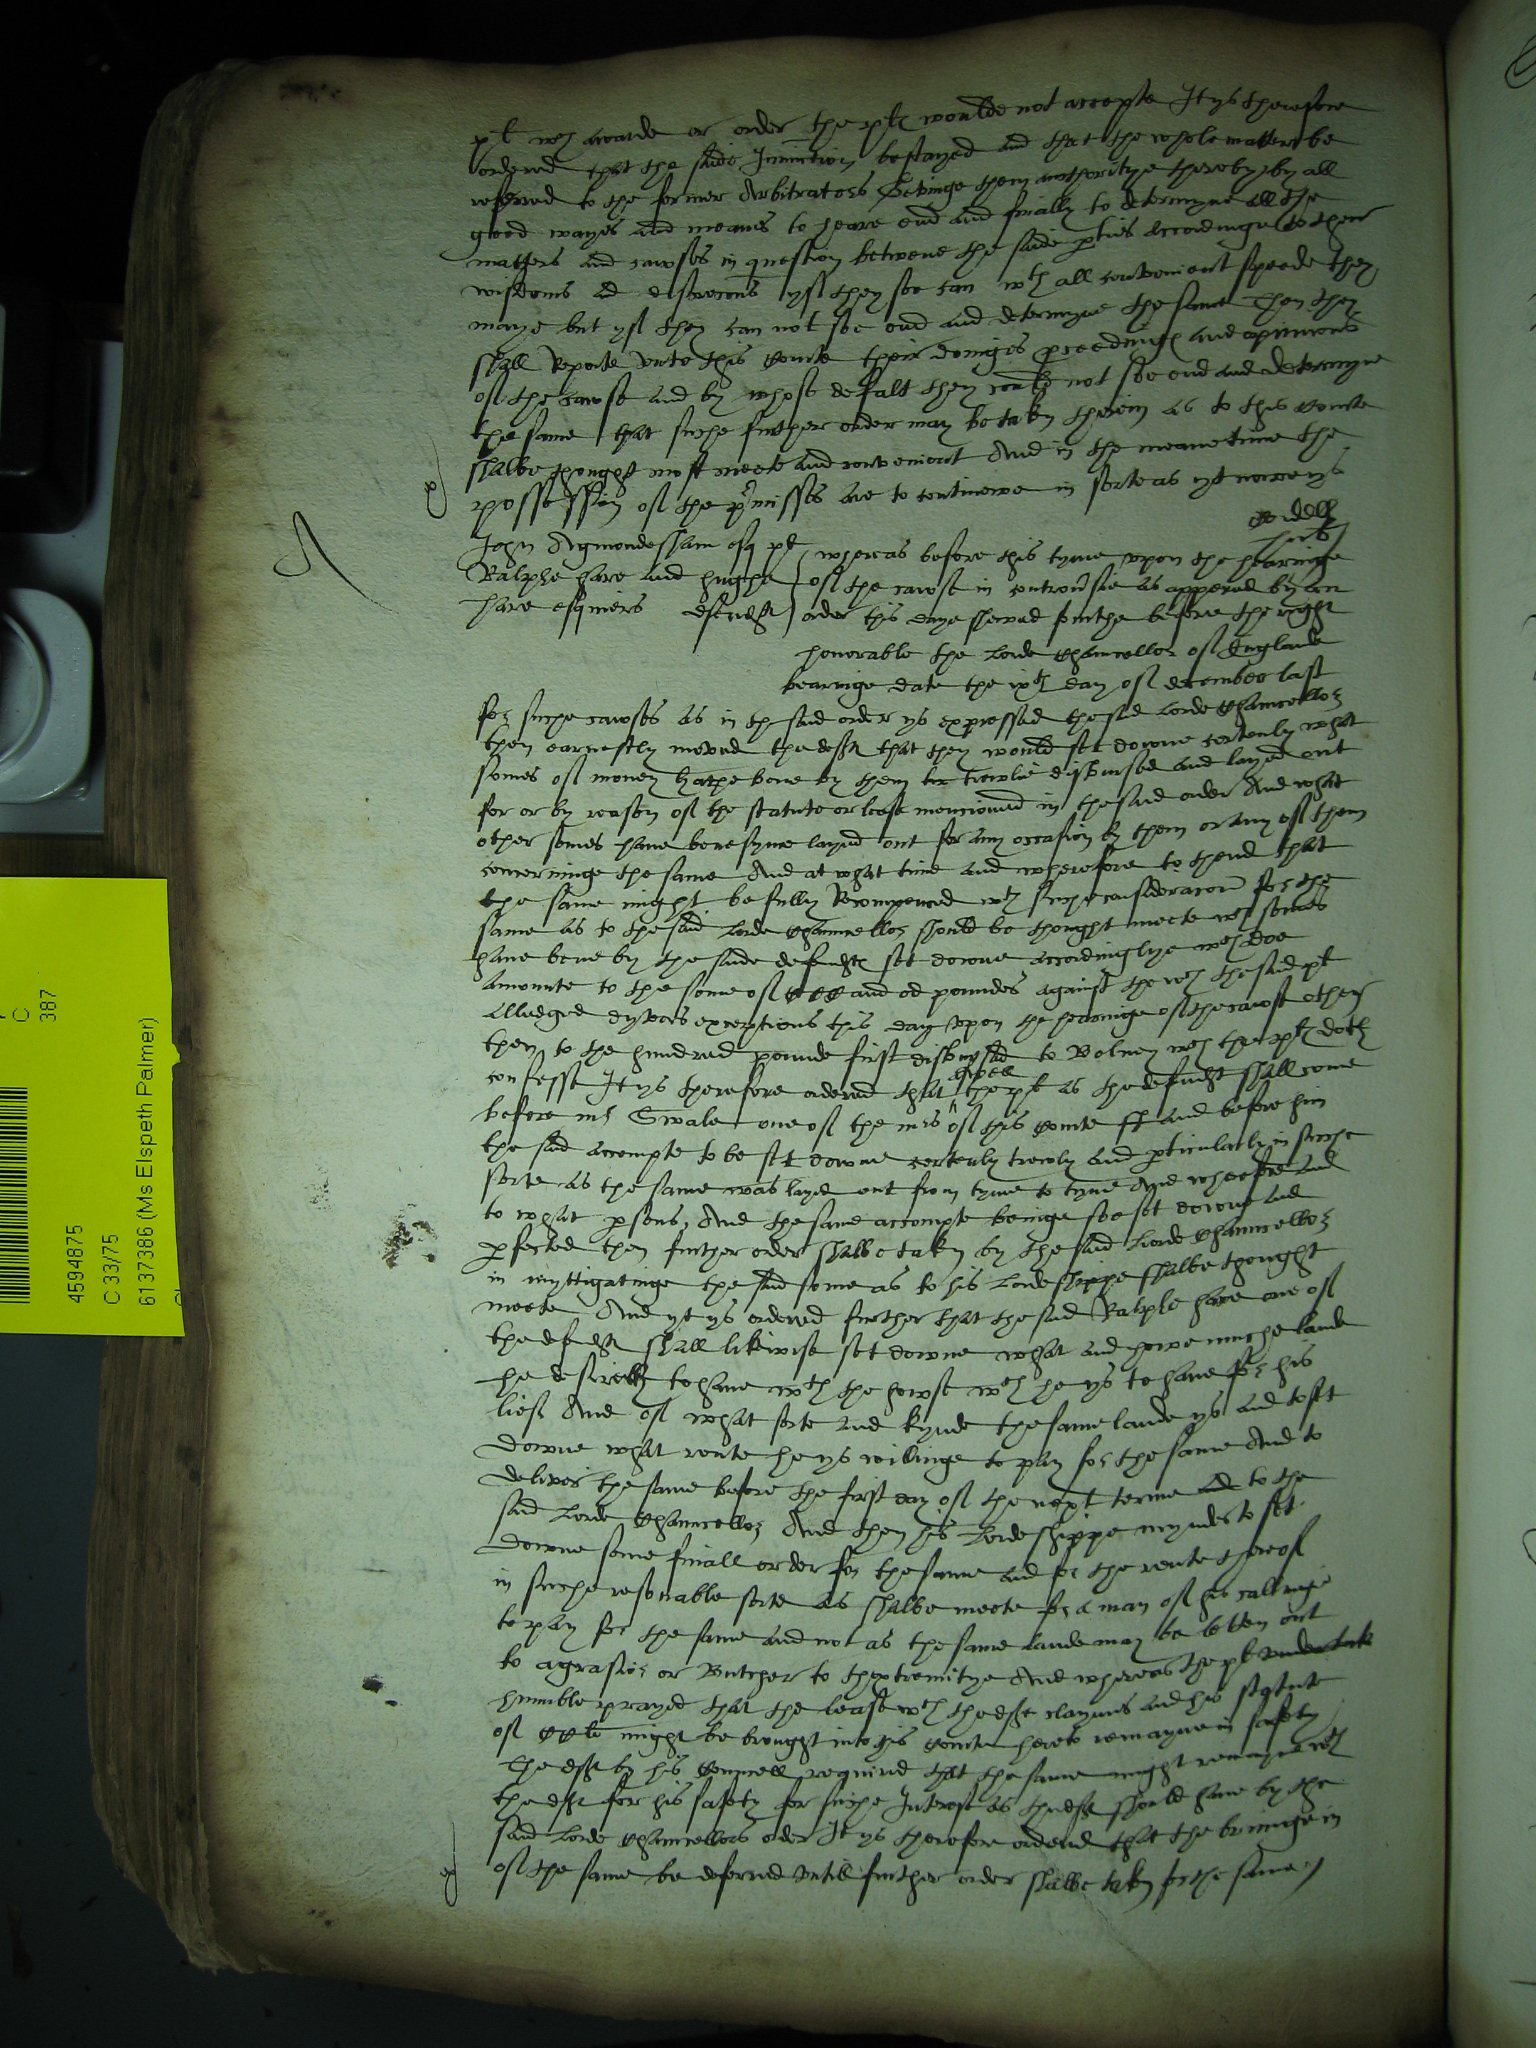 plt wch awarde or order the plt woulde not accepte It ys therefore
ordered that the saide Iniunction be stayed and that the whole matter be
referred to the former Arbitrators Gevinge them authoritye thereby by all
good wayes and meanes to heare end and finally to determyne all the
matters and cawses in question betwene the saide pties accordinge to their
wisdoms ad discrecons yf they soe can wth all convenient speede they
maye but yf they can not soe end and determyne the same Then they
shall Reporte unto this Courte their doinges proceedings and opinions
of the cawse and by whose defalt they coulde not soe end and determyne
the same that suche further order may be taken therein as to this Courte
shalbe thought most meete and convenient And in the meane time the
possession of the pmisses are to contineve in sorte as yt nowe ys
Cordell
John Agmondesham esq plt
Ralphe hare and hughe
hare esquiers defendts
whereas before this tyme upon the hearinge
of the cawse in controvsie as appered by an
order this daye shewed furthe before the right
honorable the Lorde Chauncellor of Englande
bearinge date the ixth day of december last
for suche cawses as in the said order ys expressed the said Lorde Chauncellor
then earnestly moved the deftes that they would set downe certenly what
somes of money hathe bene by them trewlie disbursed and layed out
for or by reason of the statute or lease mencioned in the said order And what
other somes have bene synce layed out for any occasion by them or any of them
concerninge the same And at what time and wherefore to thend that
the same might be fully Recompenced wth suche consideracon for the
same as to the said Lorde Chauncellor should be thought meete wch somes
have bene by the saide defendts set downe accordinglye wch doe
amounte to the some of CCC and od poundes against the wch the said plt
alledged dyvers exceptions this day upon the hearinge of the cawse other
then to the hundred pounde first disbursed to Bolney wch the plt doth
confesse It ys therefore ordered that aswell the plt as the defendt shall come
before mr Swale one of the mrs of this Courte ff and before him
the said accompte to be set downe certenly trewly and pticularly in suche
sorte as the same was layed out from tyme to tyme And wherefore and
to what psons And the same accompte beinge soe set downe and
pfected then further order shalbe taken by the said Lorde Chauncellor
in myttigatinge the said some as to his Lordeshippe shalbe thought
meete And yt ys ordered further that the said Ralphe hare one of
the defendts shall likewise set downe what and howe muche lande
he desireth to have wth the howse wch he ys to have for his
lief And of what sorte and kynde the same lande ys and to set
downe what rente he ys willinge to pay for the same And to
deliver the same before the first day of the next terme to the
said Lorde Chauncellor And then his Lordeshippe myndes to set
downe some finall order for the same and for the rente thereof
in suche resonable sorte as shalbe meete for a man of his callinge
to pay for the same and not as the same lande may be letten out
to a grasier or Butcher to thextremitye And whereas the plt
humble prayed that the lease wch the deft claymes and his statute
of might be brought into this Courte here to remayne in safety
The deft by his Councell required that the same might remayne wth
the deft for his safety for suche Interest as the deft should have by the
said Lorde Chauncellors order It ys therefore ordered that the bringinge in
of the same be deferred untill further order shalbe taken for the same
4594875
C 33/75
6137386 (Ms Elspeth Palmer)
C
387